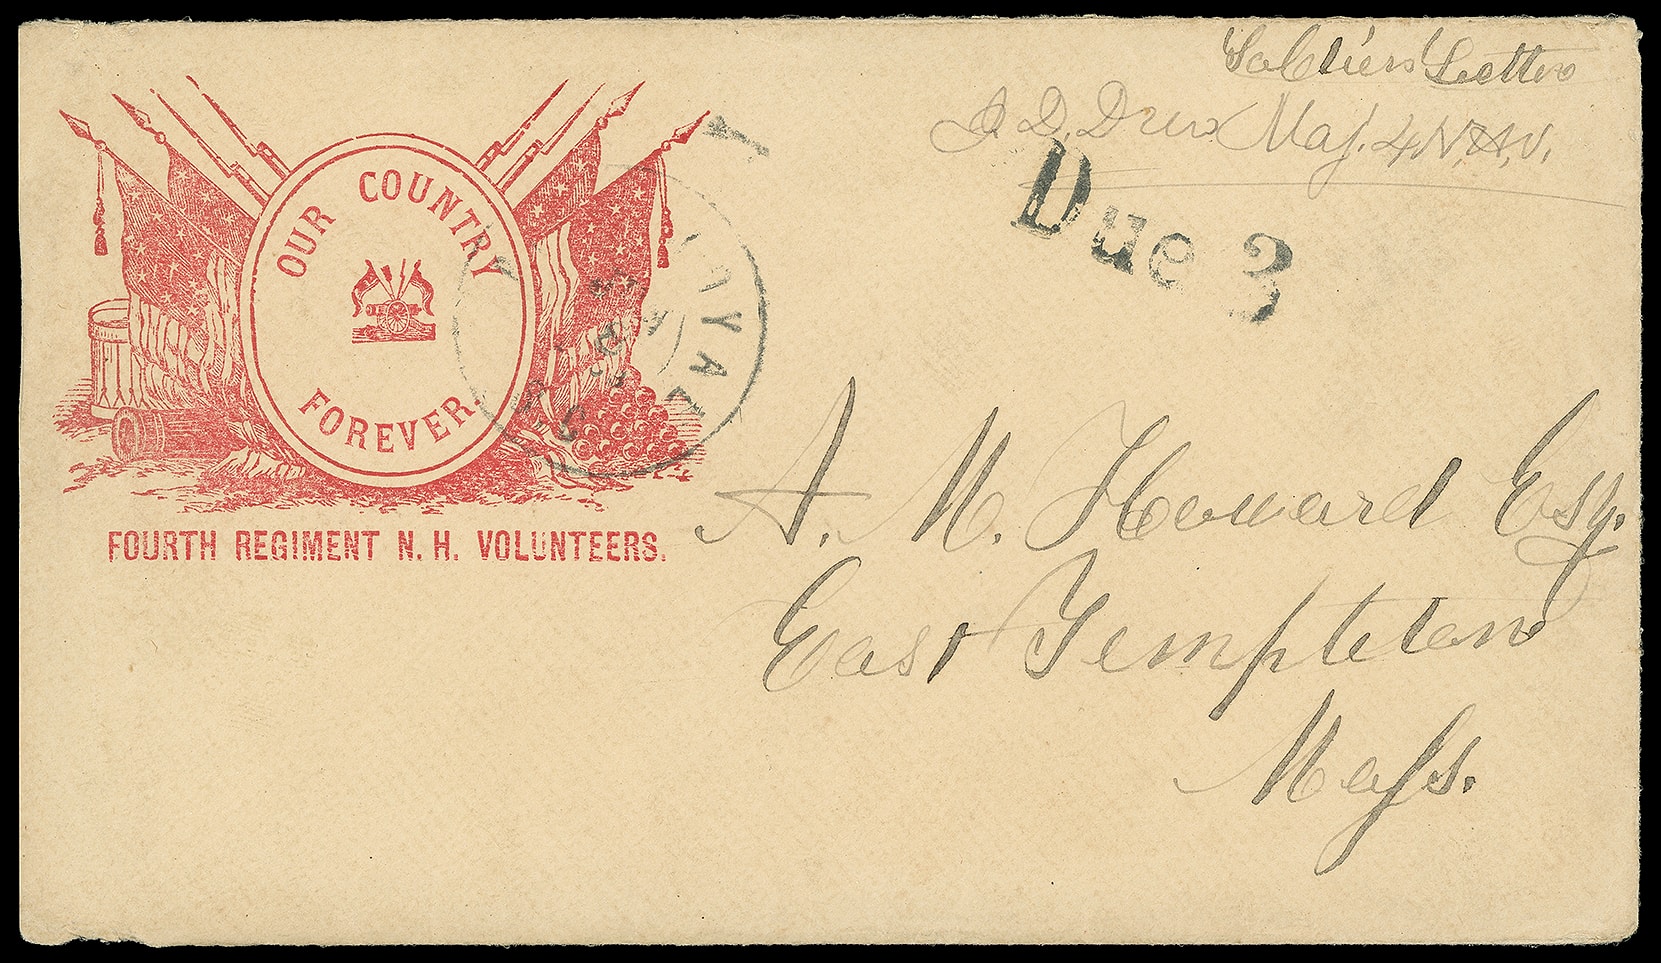 Soldiers' Letter
J. D. Drew Maj. 4 N.H.V.
Due 3
OUR COUNTRY
FOREVER.
ROYAL
S.C.
FOURTH REGIMENT N. H. VOLUNTEERS.
A. M. Howard Esq.
East Templeton
Mass.